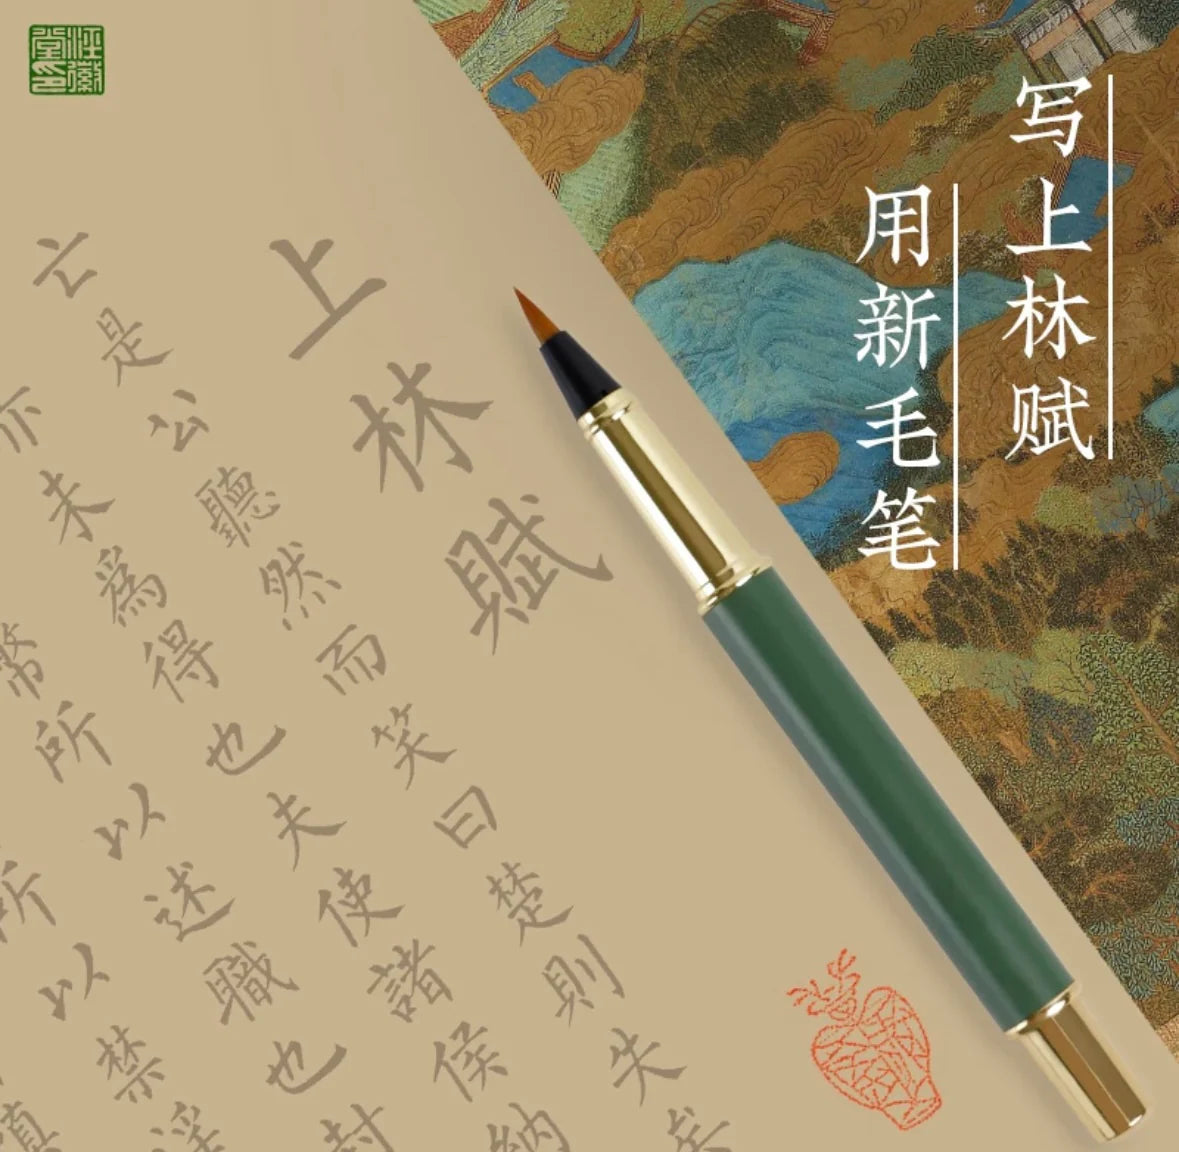 写上林赋
用新毛笔
泾徽堂印
上林賦
亡是公聽然而笑曰楚則失矣
亦未為得也夫使諸侯納
幣所以述職也封
所以禁淫